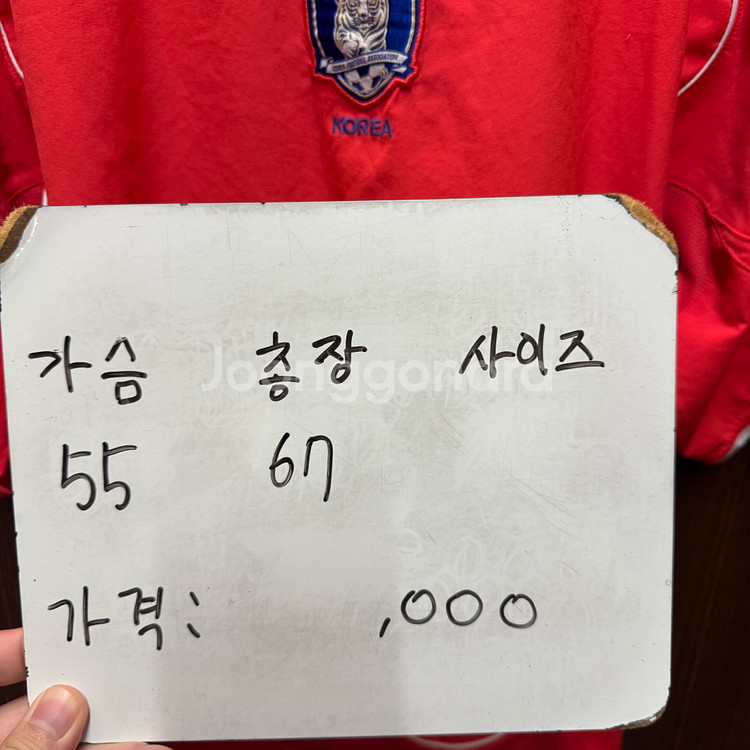 KOREA FOOTBALL ASSOCIATION
KOREA
가슴 총장 사이즈
Joonggonara
55 67
가격: ,000